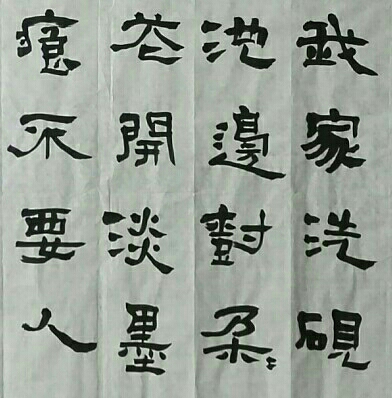 我家洗硯
池邊樹朵〻
花開淡墨
痕不要人